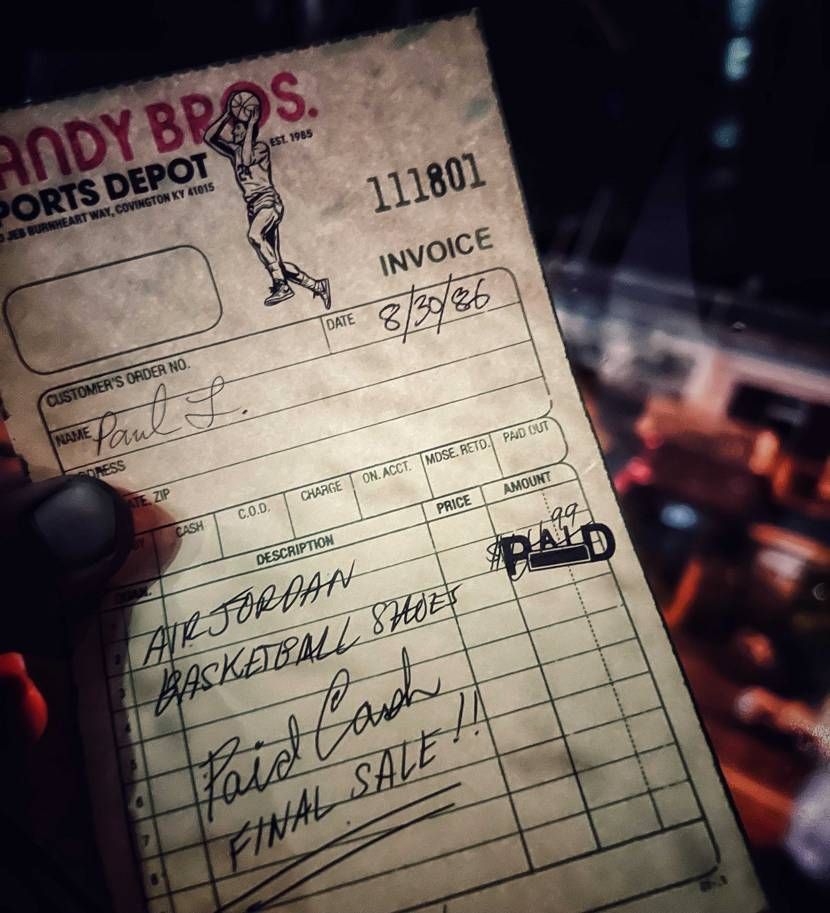 ANDY BROS.
EST. 1985
PORTS DEPOT
JEB BURNHEART WAY, COVINGTON KY 41015
111801
INVOICE
DATE 8/30/86
CUSTOMER'S ORDER NO.
NAME Paul L.
ADDRESS
ZIP
CASH C.O.D. CHARGE ON. ACCT. MDSE. RETD. PAID OUT
DESCRIPTION PRICE AMOUNT
1 AIR JORDAN
PAID
2 BASKETBALL SHOES
3
4
5 Paid Cash
6
7 FINAL SALE!!
8